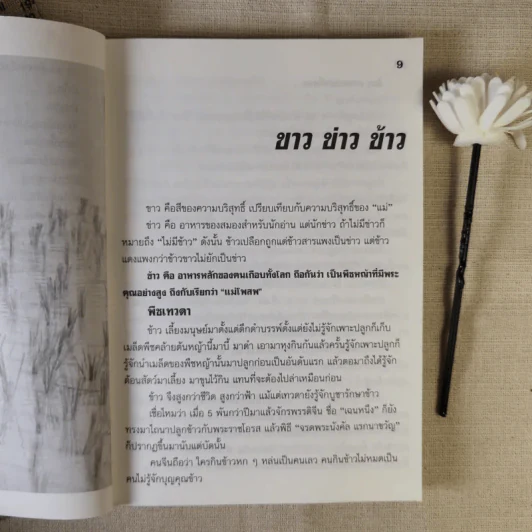 9
ขาว ข่าว ข้าว
ขาว คือสีของความบริสุทธิ์ เปรียบเทียบกับความบริสุทธิ์ของ “แม่”
ข่าว คือ อาหารของสมองสำหรับนักอ่าน แต่นักข่าว ถ้าไม่มีข่าวก็
หมายถึง “ไม่มีข้าว” ดังนั้น ข้าวเปลือกถูกแต่ข้าวสารแพงเป็นข่าว แต่ข้าว
แดงแพงกว่าข้าวขาวไม่ยักเป็นข่าว
ข้าว คือ อาหารหลักของคนเกือบทั้งโลก ถือกันว่า เป็นพืชหญ้าที่มีพระ
คุณอย่างสูง ถึงกับเรียกว่า “แม่โพสพ”
พืชเทวดา
ข้าว เลี้ยงมนุษย์มาตั้งแต่ดึกดำบรรพ์ตั้งแต่ยังไม่รู้จักเพาะปลูกก็เก็บ
เมล็ดพืชคล้ายต้นหญ้านี้มาบี้ มาตำ เอามาหุงกินกันแล้วครั้นรู้จักเพาะปลูกก็
รู้จักนำเมล็ดของพืชหญ้านั้นมาปลูกก่อนเป็นอันดับแรก แล้วต่อมาถึงได้รู้จัก
ต้อนสัตว์มาเลี้ยง มาขุนไว้กิน แทนที่จะต้องไปล่าเหมือนก่อน
ข้าว จึงสูงกว่าชีวิต สูงกว่าฟ้า แม้แต่เทวดายังรู้จักบูชารักษาข้าว
เชื่อไหมว่า เมื่อ 5 พันกว่าปีมาแล้วจักรพรรดิจีน ชื่อ “เฉนหนึง” ก็ยัง
ทรงมาไถนาปลูกข้าวกับพระราชโอรส แล้วพิธี “จรดพระนังคัล แรกนาขวัญ”
ก็ปรากฏขึ้นมานับแต่บัดนั้น
คนจีนถือว่า ใครกินข้าวหก ๆ หล่นเป็นคนเลว คนกินข้าวไม่หมดเป็น
คนไม่รู้จักบุญคุณข้าว